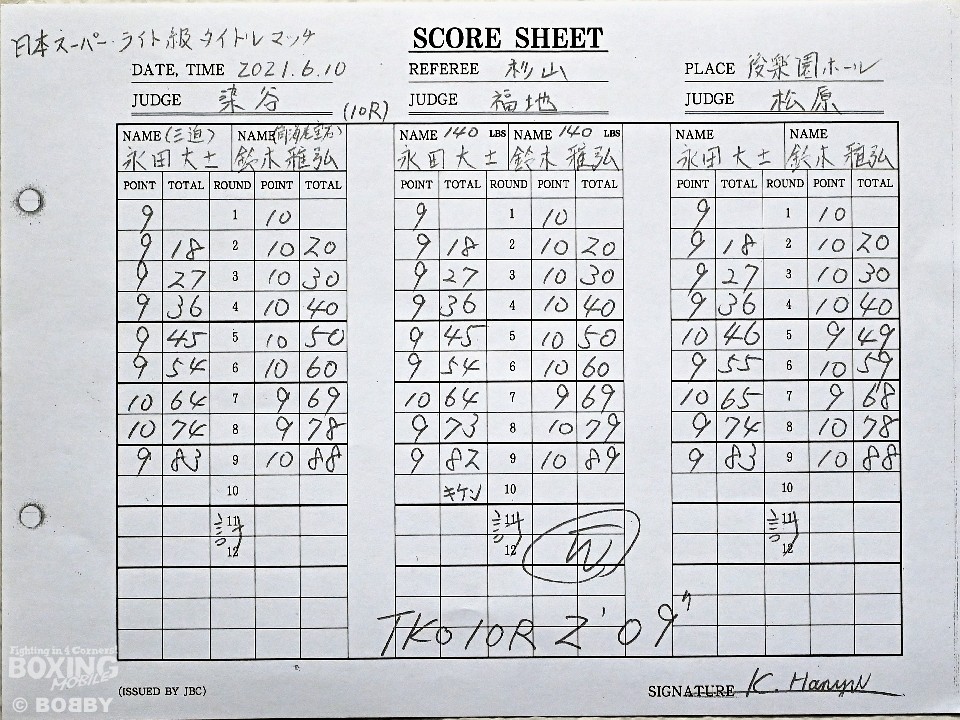 日本スーパーライト級タイトルマッチ
SCORE SHEET
DATE, TIME 2021.6.10 REFEREE 杉山 PLACE 後楽園ホール
JUDGE 染谷 (10R) JUDGE 福地 JUDGE 松原
NAME (三迫) NAME NAME 140 LBS NAME 140 LBS NAME NAME
永田大士 鈴木雅弘 永田大士 鈴木雅弘 永田大士 鈴木雅弘
POINT TOTAL ROUND POINT TOTAL POINT TOTAL ROUND POINT TOTAL POINT TOTAL ROUND POINT TOTAL
9 1 10 9 1 10 9 1 10
9 18 2 10 20 9 18 2 10 20 9 18 2 10 20
9 27 3 10 30 9 27 3 10 30 9 27 3 10 30
9 36 4 10 40 9 36 4 10 40 9 36 4 10 40
9 45 5 10 50 9 45 5 10 50 10 46 5 9 49
9 54 6 10 60 9 54 6 10 60 9 55 6 10 59
10 64 7 9 69 10 64 7 9 69 10 65 7 9 68
10 74 8 9 78 9 73 8 10 79 9 74 8 10 78
9 83 9 10 88 9 82 9 10 89 9 83 9 10 88
10 キケン 10 10
11 11 11
12 12 W 12
TKO 10R 2'09"
Fighting in 4 Corners!
BOXING
MOBILE
© BOBBY
(ISSUED BY JBC) SIGNATURE K.